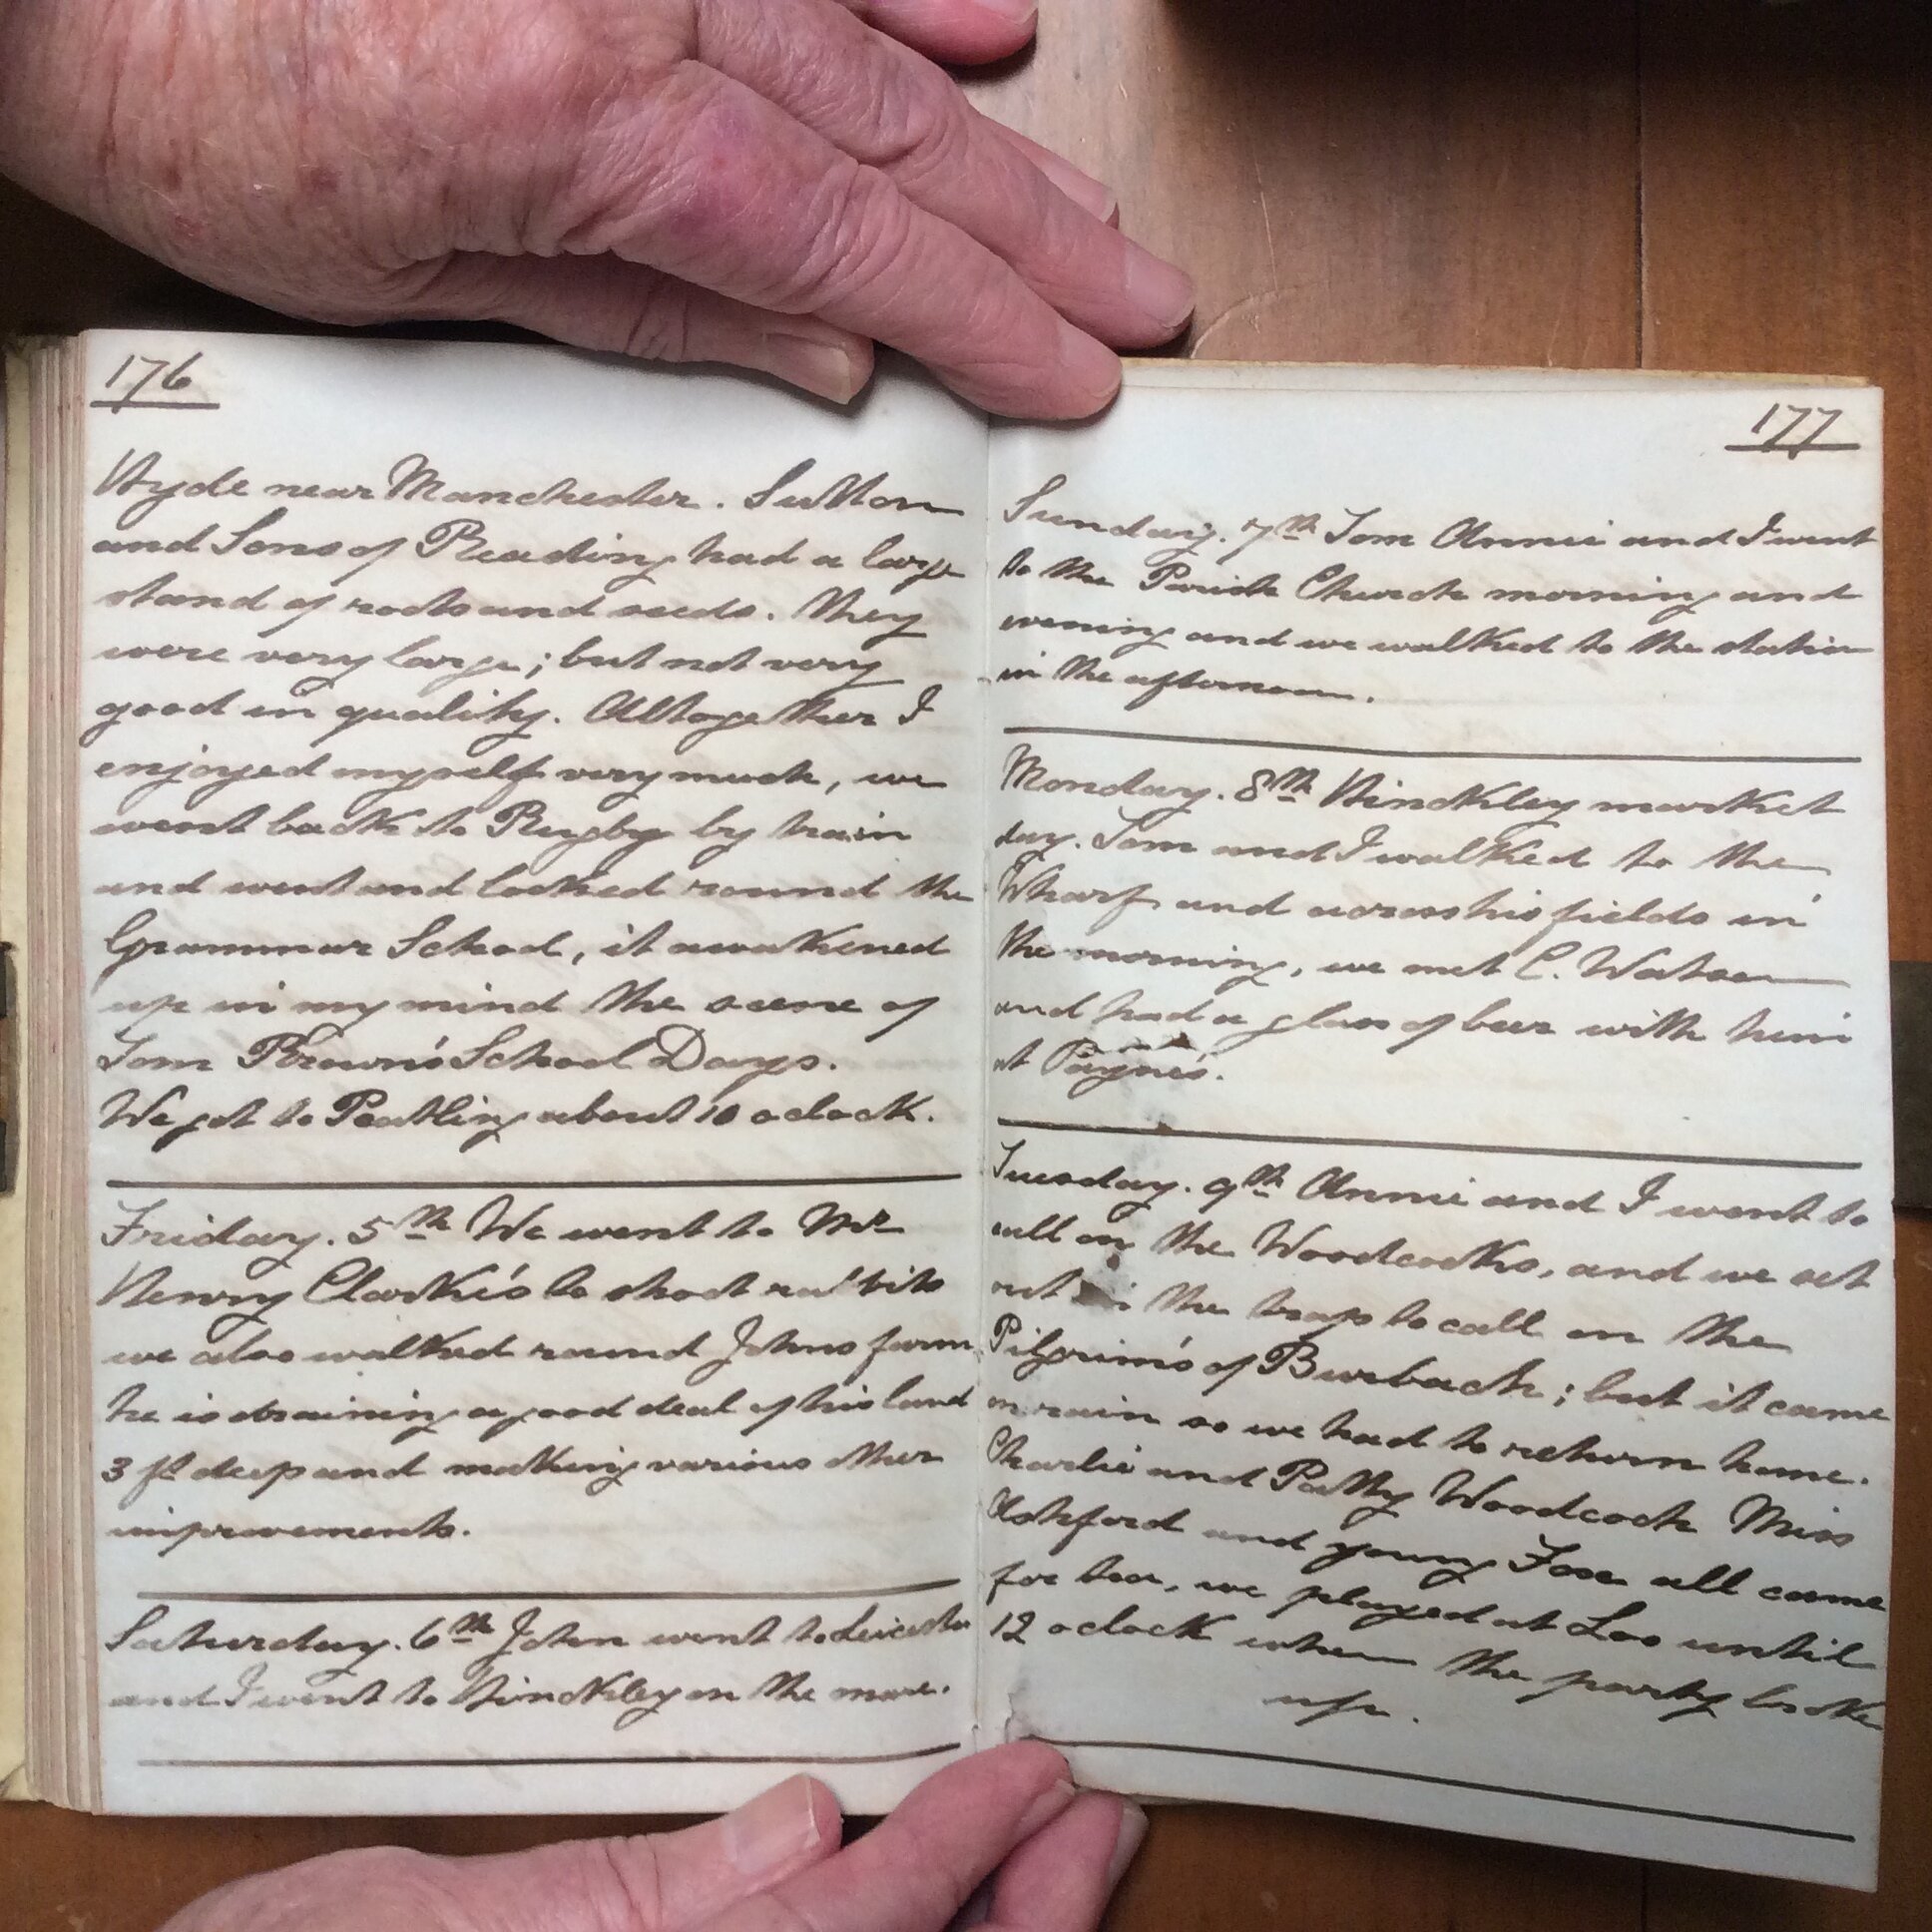 176
Hyde near Manchester. Sutton
and Sons of Reading had a large
stand of roots and seeds. They
were very large; but not very
good in quality. Altogether I
enjoyed myself very much, we
went back to Rugby by train
and went and looked round the
Grammar School, it awakened
up in my mind the scene of
Tom Brown's School Days.
We got to Peatling about 10 oclock.
Friday. 5th We went to Mr
Henry Clarke's to shoot rabbits
we also walked round Johns farm,
he is draining a good deal of his land
3 ft deep and making various other
improvements.
Saturday. 6th John went to Leicester
and I went to Hinckley on the mare.
177
Sunday. 7th Tom Annie and I went
to the Parish Church morning and
evening and we walked to the station
in the afternoon.
Monday. 8th Hinckley market
day. Tom and I walked to the
Wharf and across his fields in
the morning, we met C. Watson
and had a glass of beer with him
at Payne's.
Tuesday. 9th Annie and I went to
call on the Woodcocks, and we set
out in the trap to call on the
Pilgrim's of Burbach; but it came
on rain so we had to return home.
Charlie and Patty Woodcock Miss
Ashford and young Fox all came
for tea, we played at Loo until
12 oclock when the party broke
up.